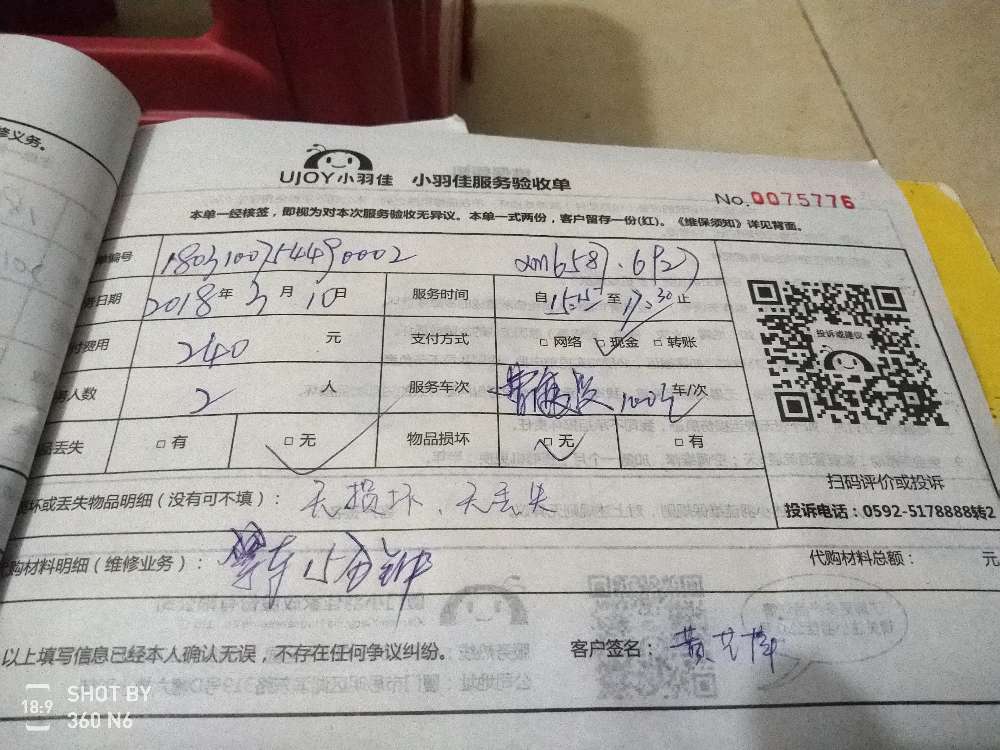 修义务。
UJOY小羽佳 小羽佳服务验收单
No.0075776
本单一经核签，即视为对本次服务验收无异议。本单一式两份，客户留存一份(红)。《维保须知》详见背面。
编号 1803100754490002
日期 2018年3月10日 服务时间 自15:15至17:30止
费用 240 元 支付方式 □网络 □现金 □转账
人数 2 人 服务车次 100元 车/次
丢失 □有 □无 物品损坏 □无 □有
投诉或建议
扫码评价或投诉
投诉电话：0592-5178888转2
坏或丢失物品明细（没有可不填）： 无损坏、无丢失
购材料明细（维修业务）： 15分钟 代购材料总额： 元
以上填写信息已经本人确认无误，不存在任何争议纠纷。 客户签名：
SHOT BY
18:9
360 N6